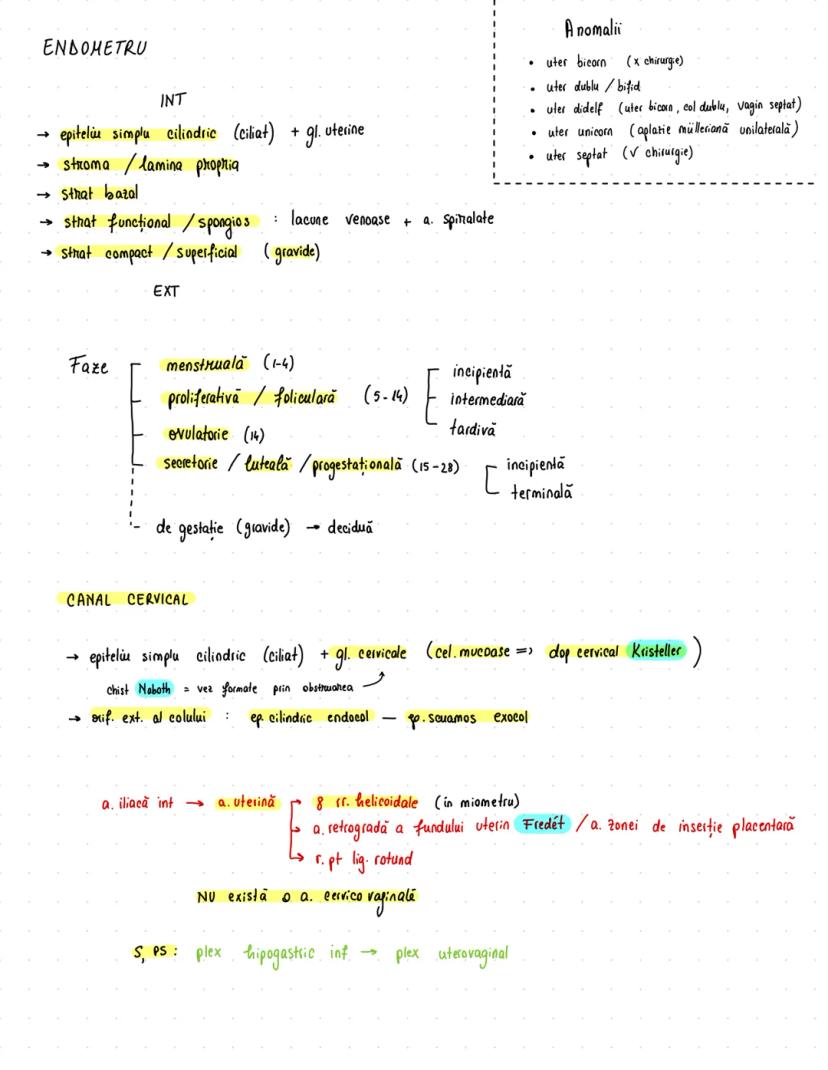 ENDOMETRU
INT
→ epiteliu simplu cilindric (ciliat) + gl. uterine
→ stroma / lamina propria
→ strat bazal
→ strat funcțional / spongios : lacune venoase + a. spiralate
→ strat compact / superficial (gravide)
EXT
Anomalii
• uter bicorn (x chirurgie)
• uter dublu / bifid
• uter didelf (uter bicorn, col dublu, vagin septat)
• uter unicorn (aplazie mülleriană unilaterală)
• uter septat (√ chirurgie)
Faze
menstruală (1-4)
proliferativă / foliculară (5-14)
incipientă
intermediară
tardivă
ovulatorie (14)
secretorie / luteală / progestațională (15-28)
incipientă
terminală
de gestație (gravide) → deciduă
CANAL CERVICAL
→ epiteliu simplu cilindric (ciliat) + gl. cervicale (cel. mucoase => dop cervical Kristeller)
chist Naboth = vez formate prin obstruarea
→ orif. ext. al colului : ep. cilindric endocol — ep. scuamos exocol
a. iliacă int → a. uterină
8 rr. helicoidale (in miometru)
a. retrogradă a fundului uterin Fredét / a. zonei de inserție placentară
r. pt lig. rotund
NU există o a. cervico vaginală
S, PS : plex hipogastric inf → plex uterovaginal